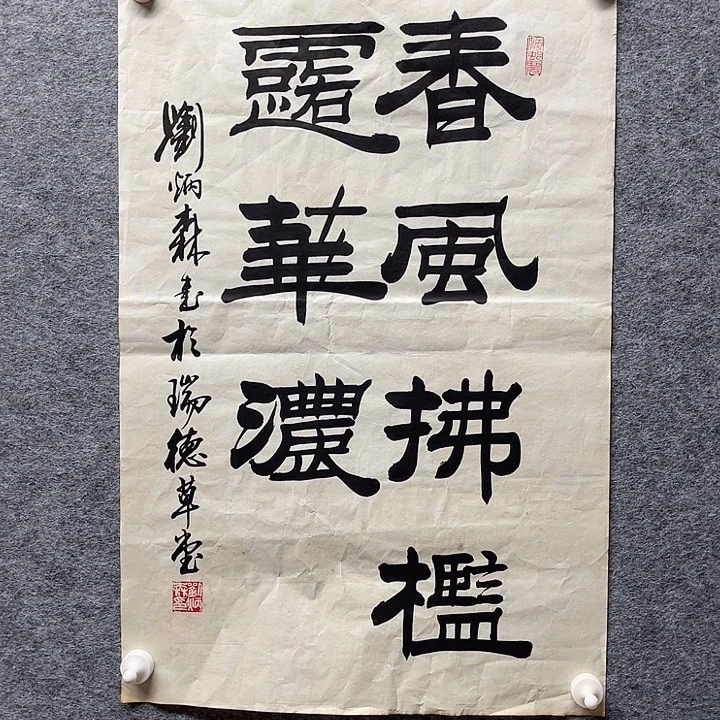 春風拂檻
露華濃
劉炳森書於瑞德草堂